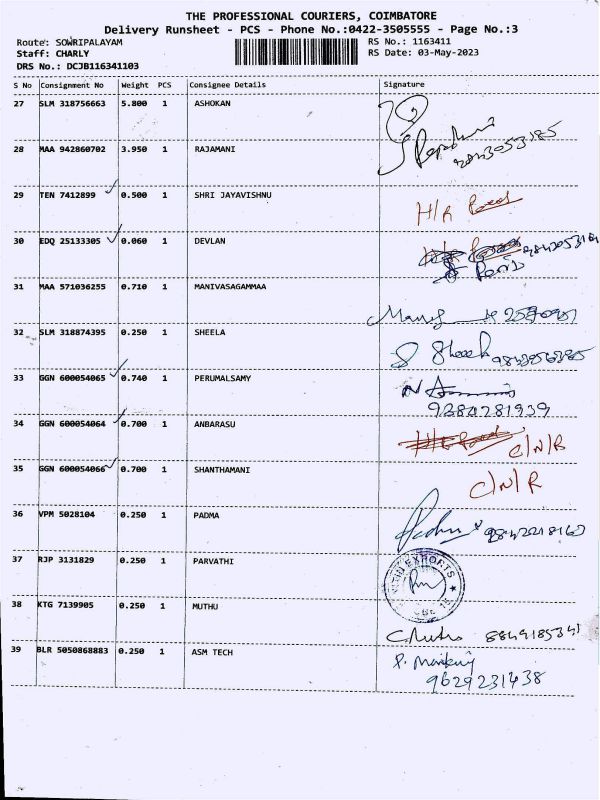 THE PROFESSIONAL COURIERS, COIMBATORE
Delivery Runsheet - PCS - Phone No.:0422-3505555 - Page No.:3
Route: SOWRIPALAYAM RS No.: 1163411
Staff: CHARLY RS Date: 03-May-2023
DRS No.: DCJB116341103
S No Consignment No Weight PCS Consignee Details Signature
27 SLM 318756663 5.800 1 ASHOKAN
28 MAA 942860702 3.950 1 RAJAMANI
29 TEN 7412899 0.500 1 SHRI JAYAVISHNU H/R
30 EDQ 25133305 0.060 1 DEVLAN
31 MAA 571036255 0.710 1 MANIVASAGAMMAA
32 SLM 318874395 0.250 1 SHEELA
33 GGN 600054065 0.740 1 PERUMALSAMY
9284281939
34 GGN 600054064 0.700 1 ANBARASU C/N/R
35 GGN 600054066 0.700 1 SHANTHAMANI C/N/R
36 VPM 5028104 0.250 1 PADMA
37 RJP 3131829 0.250 1 PARVATHI
EXPORTS
38 KTG 7139905 0.250 1 MUTHU
39 BLR 5050868883 0.250 1 ASM TECH
9629231438